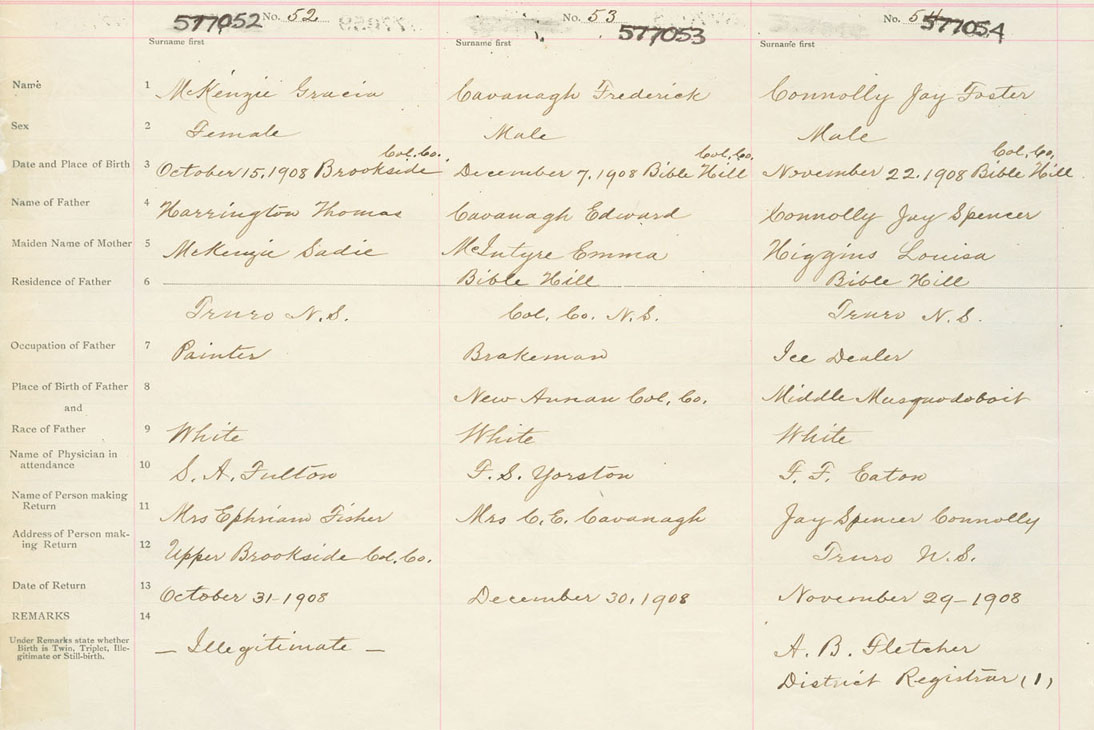 577052 No. 52 No. 53 577053 No. 54 577054
Surname first Surname first Surname first
Name 1 McKenzie Gracia Cavanagh Frederick Connolly Jay Foster
Sex 2 Female Male Male
Col. Co. Col. Co. Col. Co.
Date and Place of Birth 3 October 15, 1908 Brookside December 7, 1908 Bible Hill November 22. 1908 Bible Hill
Name of Father 4 Harrington Thomas Cavanagh Edward Connolly Jay Spencer
Maiden Name of Mother 5 McKenzie Sadie McIntyre Emma Higgins Louisa
Residence of Father 6 Bible Hill Bible Hill
Truro N.S. Col. Co. N.S. Truro N.S.
Occupation of Father 7 Painter Brakeman Ice Dealer
Place of Birth of Father 8 New Annan Col. Co. Middle Musquodoboit
and
Race of Father 9 White White White
Name of Physician in
attendance 10 S. A. Fulton F. S. Yorston F. F. Eaton
Name of Person making
Return 11 Mrs Ephriam Fisher Mrs C. E. Cavanagh Jay Spencer Connolly
Address of Person mak-
ing Return 12 Upper Brookside Col. Co. Truro N.S.
Date of Return 13 October 31-1908 December 30, 1908 November 29-1908
REMARKS 14
Under Remarks state whether
Birth is Twin, Triplet, Ille-
gitimate or Still-birth.
— Illegitimate — A. B. Fletcher
District Registrar (1)